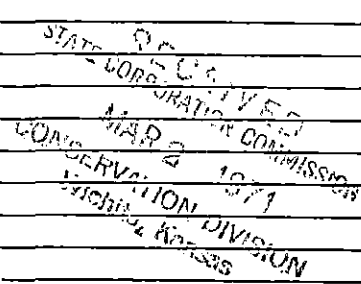 RECEIVED
STATE CORPORATION COMMISSION
MAR 2 1971
CONSERVATION DIVISION
Wichita, Kansas